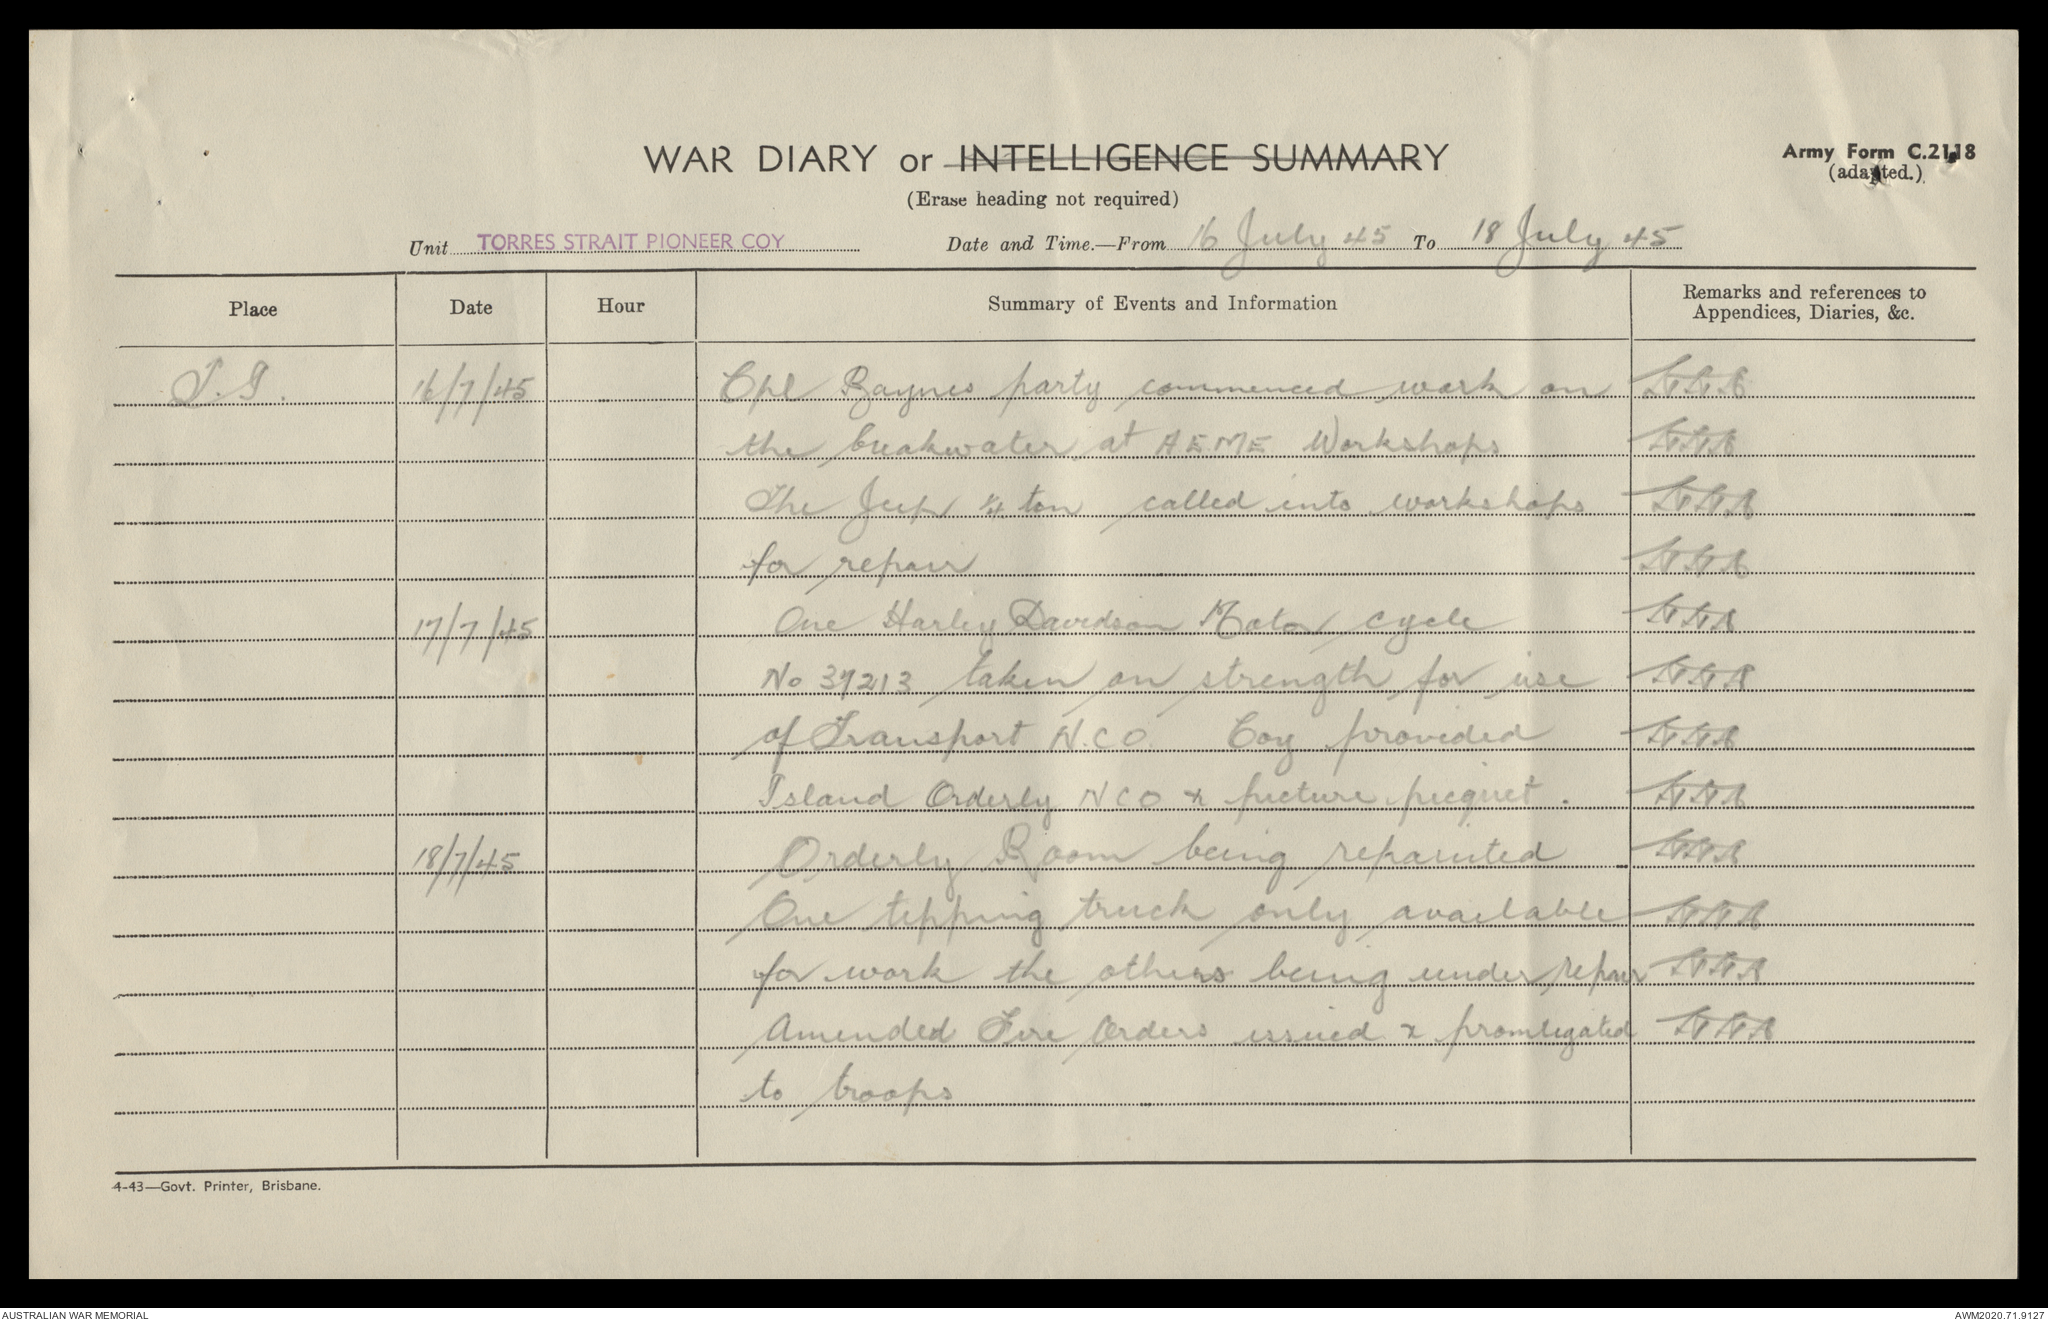 WAR DIARY or INTELLIGENCE SUMMARY
Army Form C.2118
(Erase heading not required)
(adapted.)
Unit TORRES STRAIT PIONEER COY Date and Time.—From 16 July 45 To 18 July 45
Place Date Hour Summary of Events and Information Remarks and references to
Appendices, Diaries, &c.
T.I. 16/7/45 Cpl Baynes party commenced work on
the breakwater at AEME Workshops
The Jeep 1/4 ton called into workshops
for repair
17/7/45 One Harley Davidson Motor cycle
No 37213 taken on strength for use
of Transport N.C.O. Coy provided
Island Orderly NCO & picture picquet.
18/7/45 Orderly Room being repainted
One tipping truck only available
for work the others being under repair
Amended Fire Orders issued & promulgated
to troops
4-43—Govt. Printer, Brisbane.
AUSTRALIAN WAR MEMORIAL AWM2020.71.9127